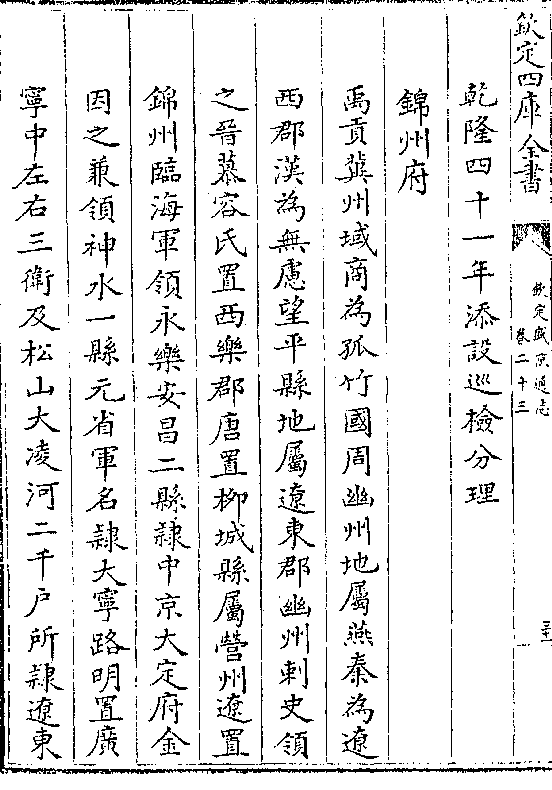 欽定四庫全書
欽定盛京通志
卷二十三
乾隆四十一年添設巡檢分理
錦州府
禹貢冀州域商為孤竹國周幽州地屬燕秦為遼
西郡漢為無慮望平縣地屬遼東郡幽州刺史領
之晉慕容氏置西樂郡唐置柳城縣屬營州遼置
錦州臨海軍領永樂安昌二縣隷中京大定府金
因之兼領神水一縣元省軍名隷大寧路明置廣
寧中左右三衛及松山大凌河二千户所隷遼東